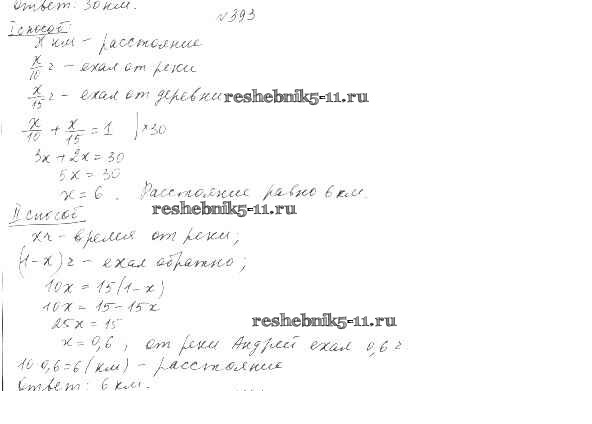 Ответ: 30 км.
№393
I способ:
x км – расстояние
x/10 г – ехал от реки
x/15 г – ехал от деревни reshebnik5-11.ru
x/10 + x/15 = 1 | ×30
3x + 2x = 30
5x = 30
x = 6. Расстояние равно 6 км.
reshebnik5-11.ru
II способ
xг – время от реки;
(1-x) г – ехал обратно;
10x = 15(1-x)
10x = 15 – 15x
reshebnik5-11.ru
25x = 15
x = 0,6, от реки Андрей ехал 0,6 г
10·0,6=6 (км) – расстояние
Ответ: 6 км.